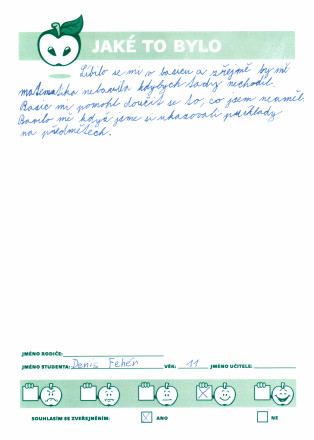 JAKÉ TO BYLO
Líbilo se mi v basicu a zřejmě by mě
matematika nebavila kdybych tady nechodil.
Basic mi pomohl doučit se to, co jsem neuměl.
Bavilo mě když jsme si ukazovali příklady
na předmětech.
JMÉNO RODIČE:
JMÉNO STUDENTA: Denis Fehér VĚK: 11 JMÉNO UČITELE:
SOUHLASÍM SE ZVEŘEJNĚNÍM: X ANO NE